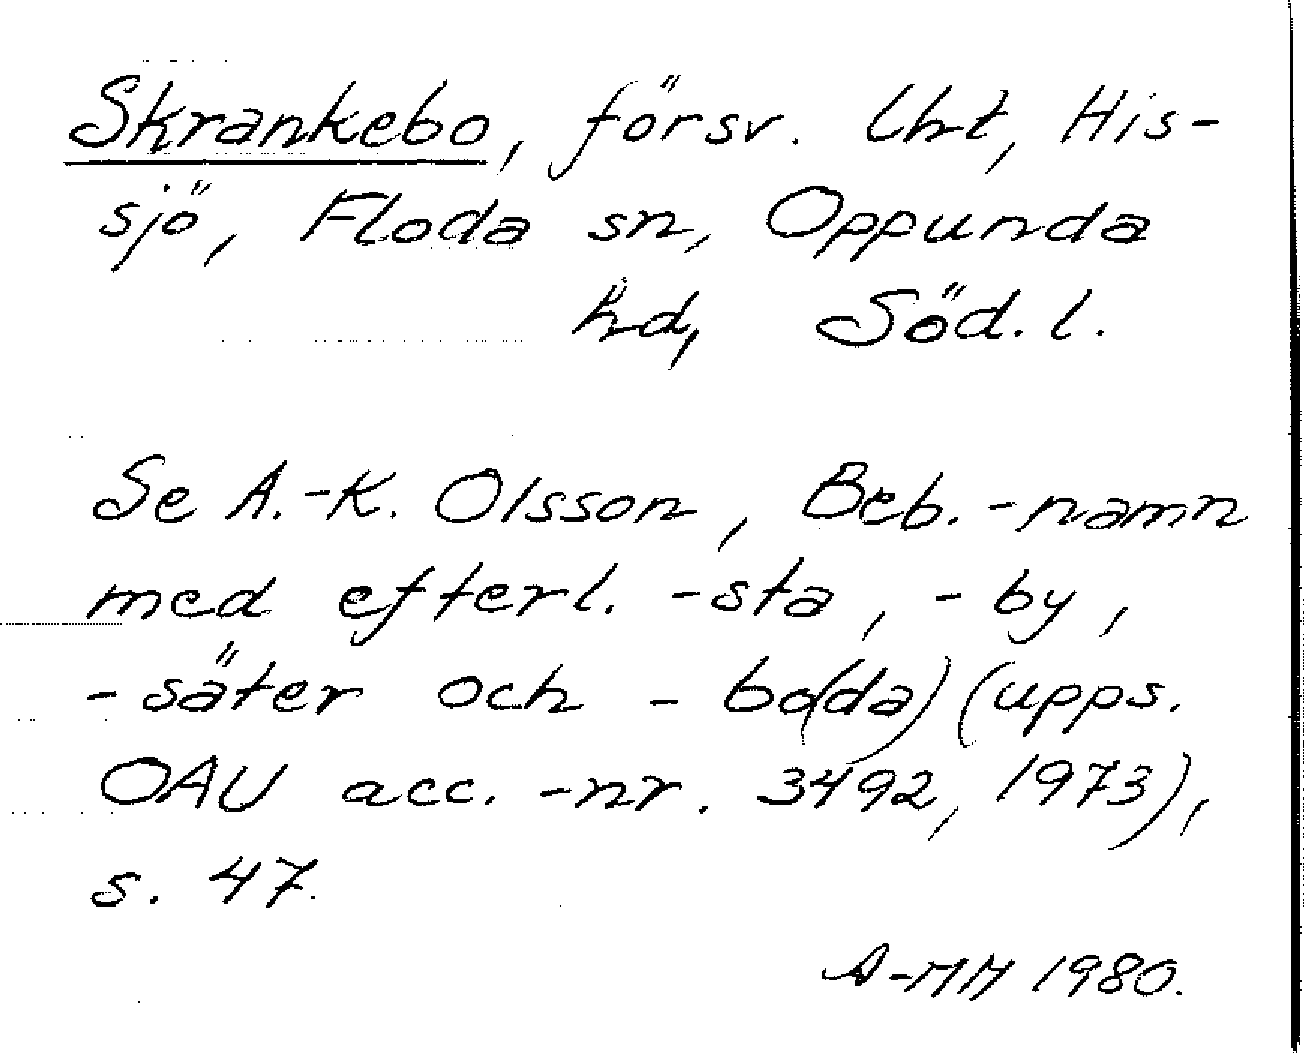 Skrankebo, försv. lht, His-
sjö, Floda sn, Oppunda
hd, Söd. l.
Se A.-K. Olsson, Beb.-namn
med efterl. -sta, -by,
-säter och -bo(da) (upps.
OAU acc.-nr. 3492, 1973),
s. 47.
A-MM 1980.